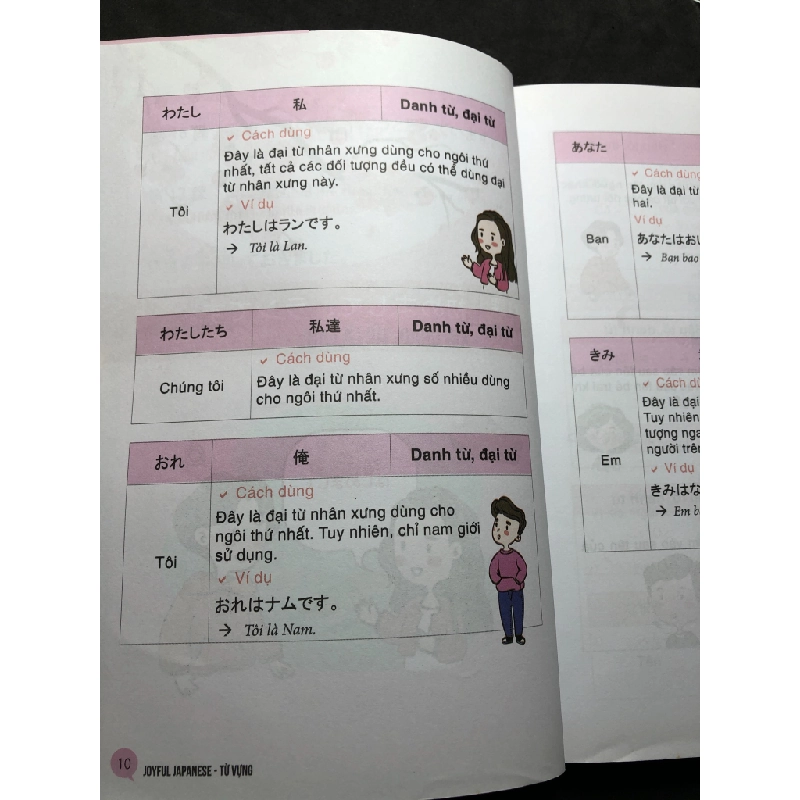 わたし 私 Danh từ, đại từ
Tôi
Cách dùng
Đây là đại từ nhân xưng dùng cho ngôi thứ
nhất, tất cả các đối tượng đều có thể dùng đại
từ nhân xưng này.
Ví dụ
わたしはランです。
→ Tôi là Lan.
わたしたち 私達 Danh từ, đại từ
Chúng tôi
Cách dùng
Đây là đại từ nhân xưng số nhiều dùng
cho ngôi thứ nhất.
おれ 俺 Danh từ, đại từ
Tôi
Cách dùng
Đây là đại từ nhân xưng dùng cho
ngôi thứ nhất. Tuy nhiên, chỉ nam giới
sử dụng.
Ví dụ
おれはナムです。
→ Tôi là Nam.
10 JOYFUL JAPANESE - TỪ VỰNG
あなた
Bạn
Cách dùng
Đây là đại từ
hai.
Ví dụ
あなたはおい
→ Bạn bao
きみ
Em
Cách
Đây là đại
Tuy nhiên
tượng
người trên
Ví dụ
きみはな
→ Em